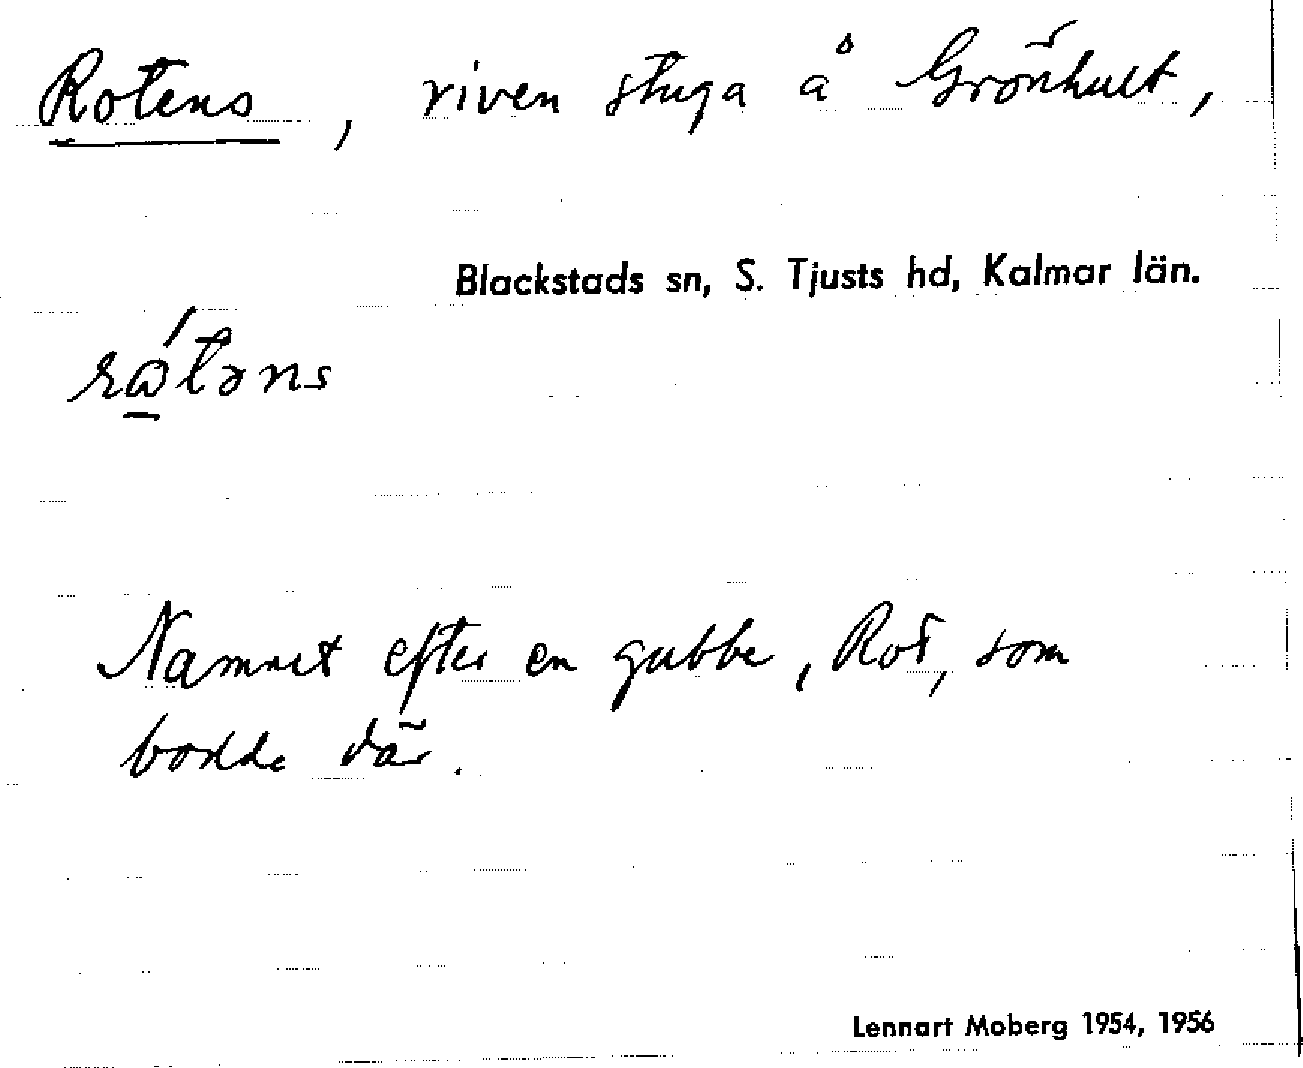 Rotens, riven stuga å Grönhult,
Blackstads sn, S. Tjusts hd, Kalmar län.
rώ̱təns
Namnet efter en gubbe, Rot, som
bodde där.
Lennart Moberg 1954, 1956